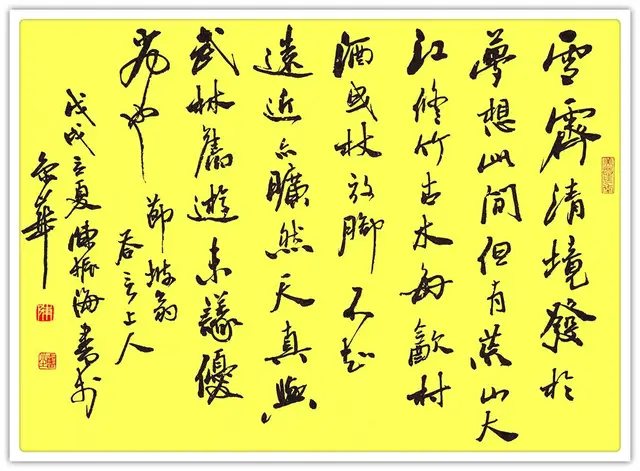 雪霽清境發於
夢想此間但有荒山大
江修竹古木每飲村
酒曳杖放脚不知
遠近亦曠然天真與
武林舊遊未議優
劣也
節坡翁
答言上人
戊戌立夏陳振海書於
京華